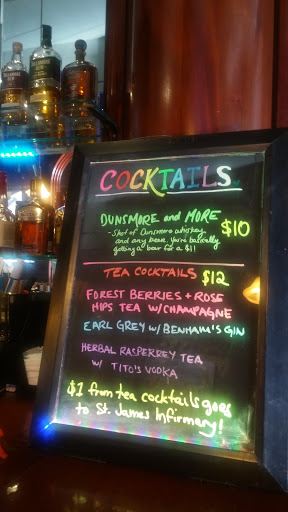 COCKTAILS
DUNSMORE and MORE
- Shot of Dunsmore whiskey $10
and any beer. You're basically
getting a beer for a $1!
TEA COCKTAILS $12
FOREST BERRIES + ROSE
HIPS TEA W/CHAMPAGNE
EARL GREY W/ BENHAM'S GIN
HERBAL RASPERREY TEA
W/ TITO'S VODKA
$1 from tea cocktails goes
to St. James Infirmary!